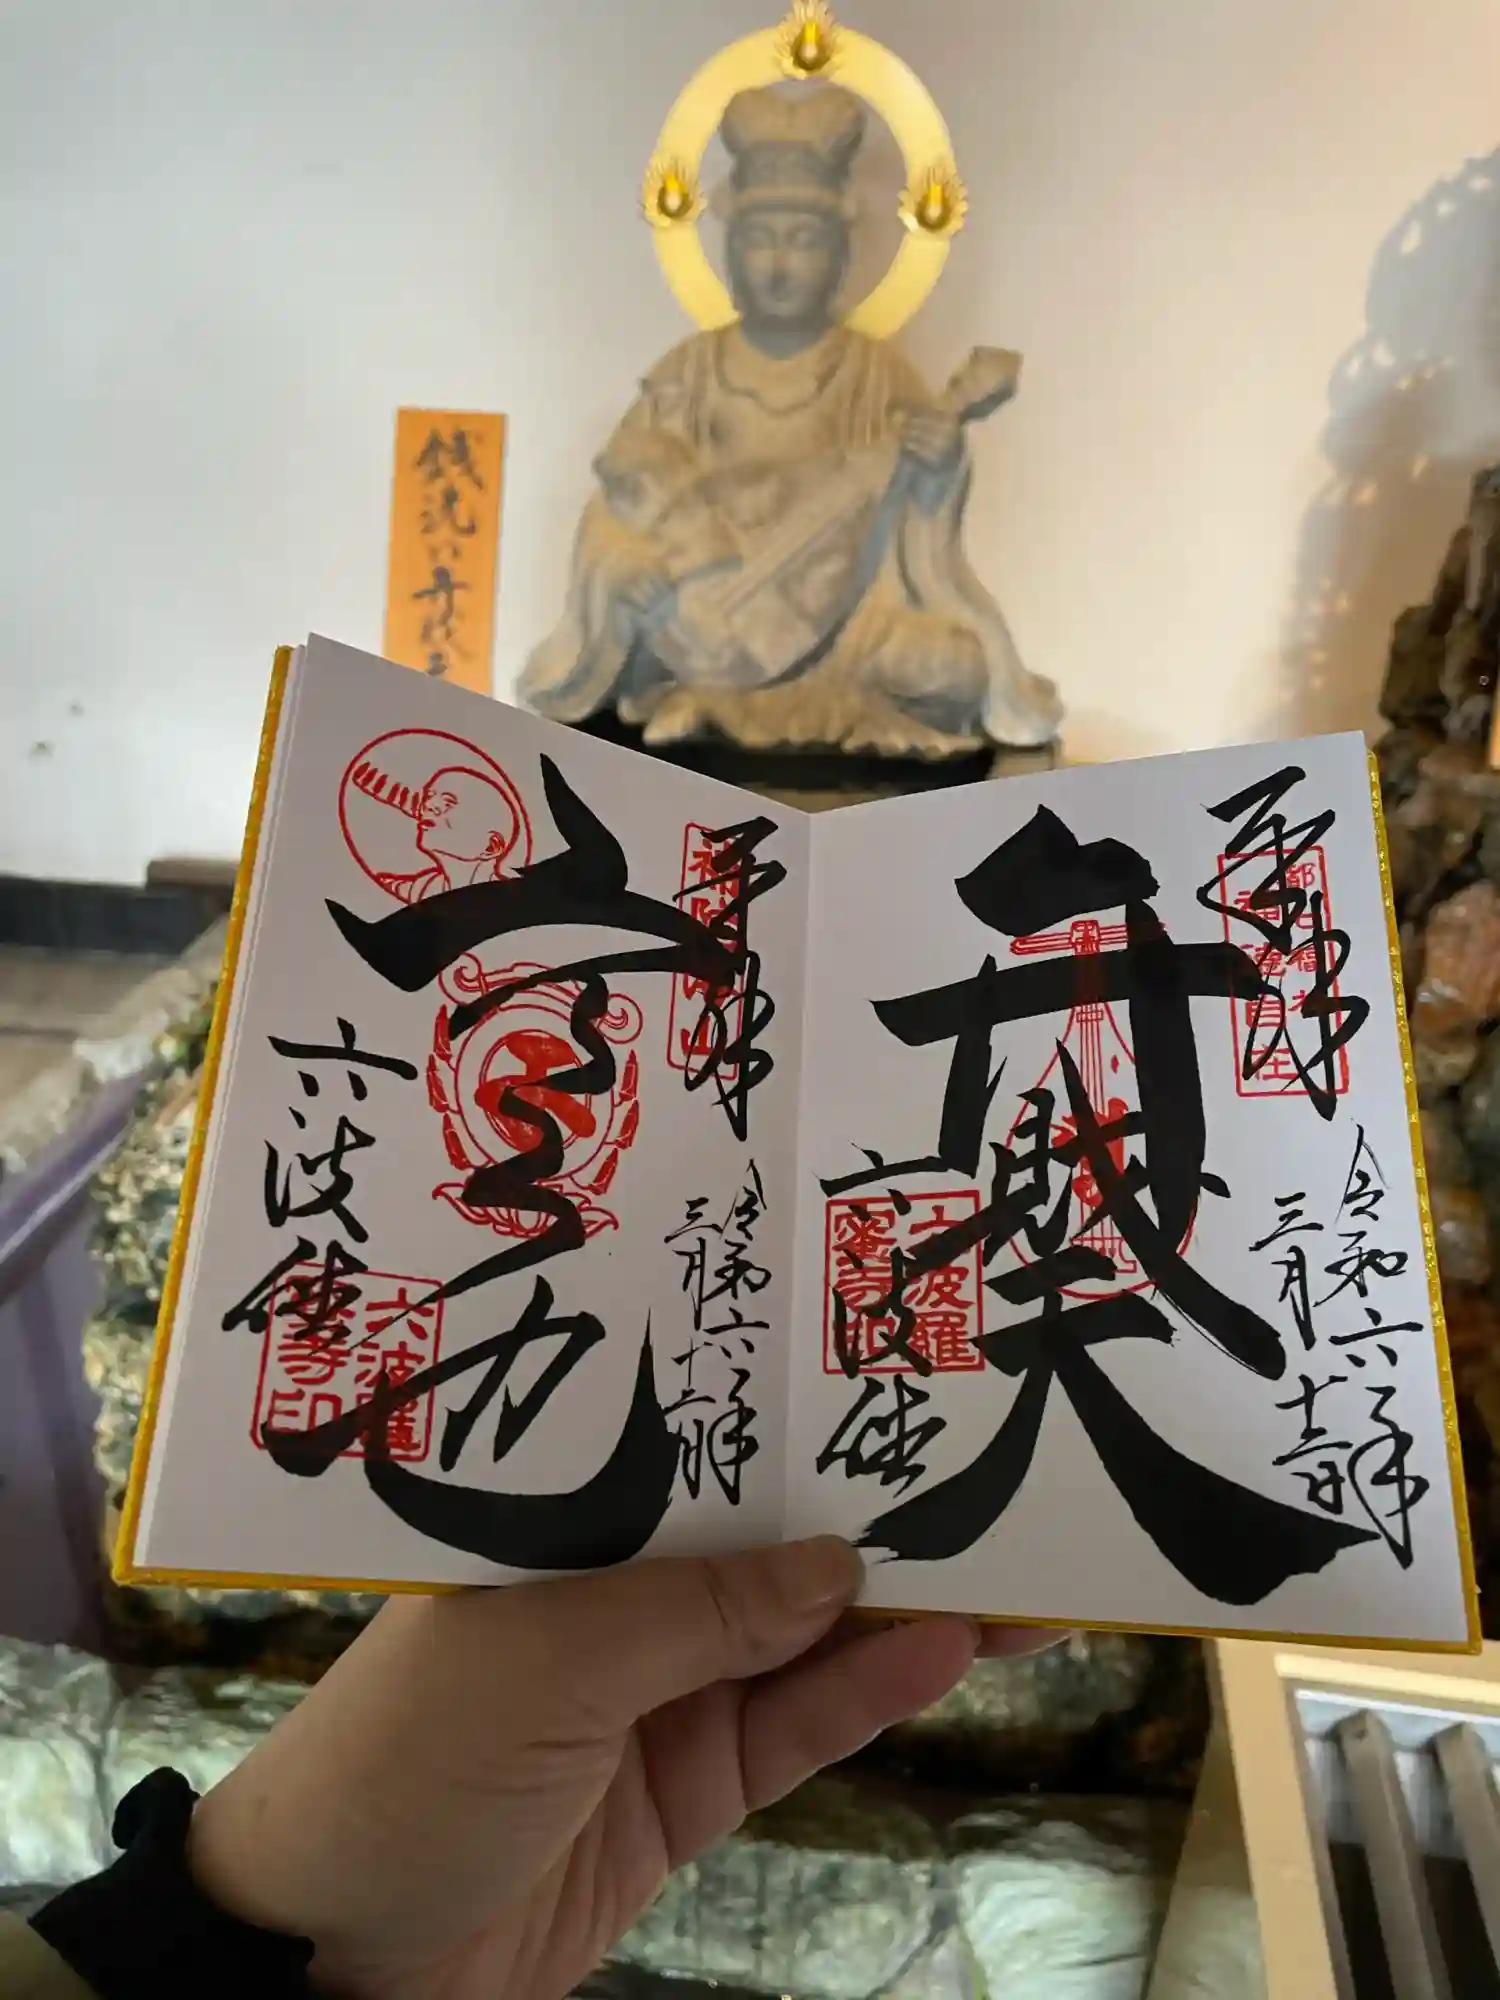 銭洗い弁財天
奉拝
補陀洛山
令和六年
三月十二日
空也
六波羅蜜寺
六波羅
蜜寺印
奉拝
都七福神
福徳自在
令和六年
三月十二日
弁財天
六波羅蜜寺
六波羅
蜜寺印